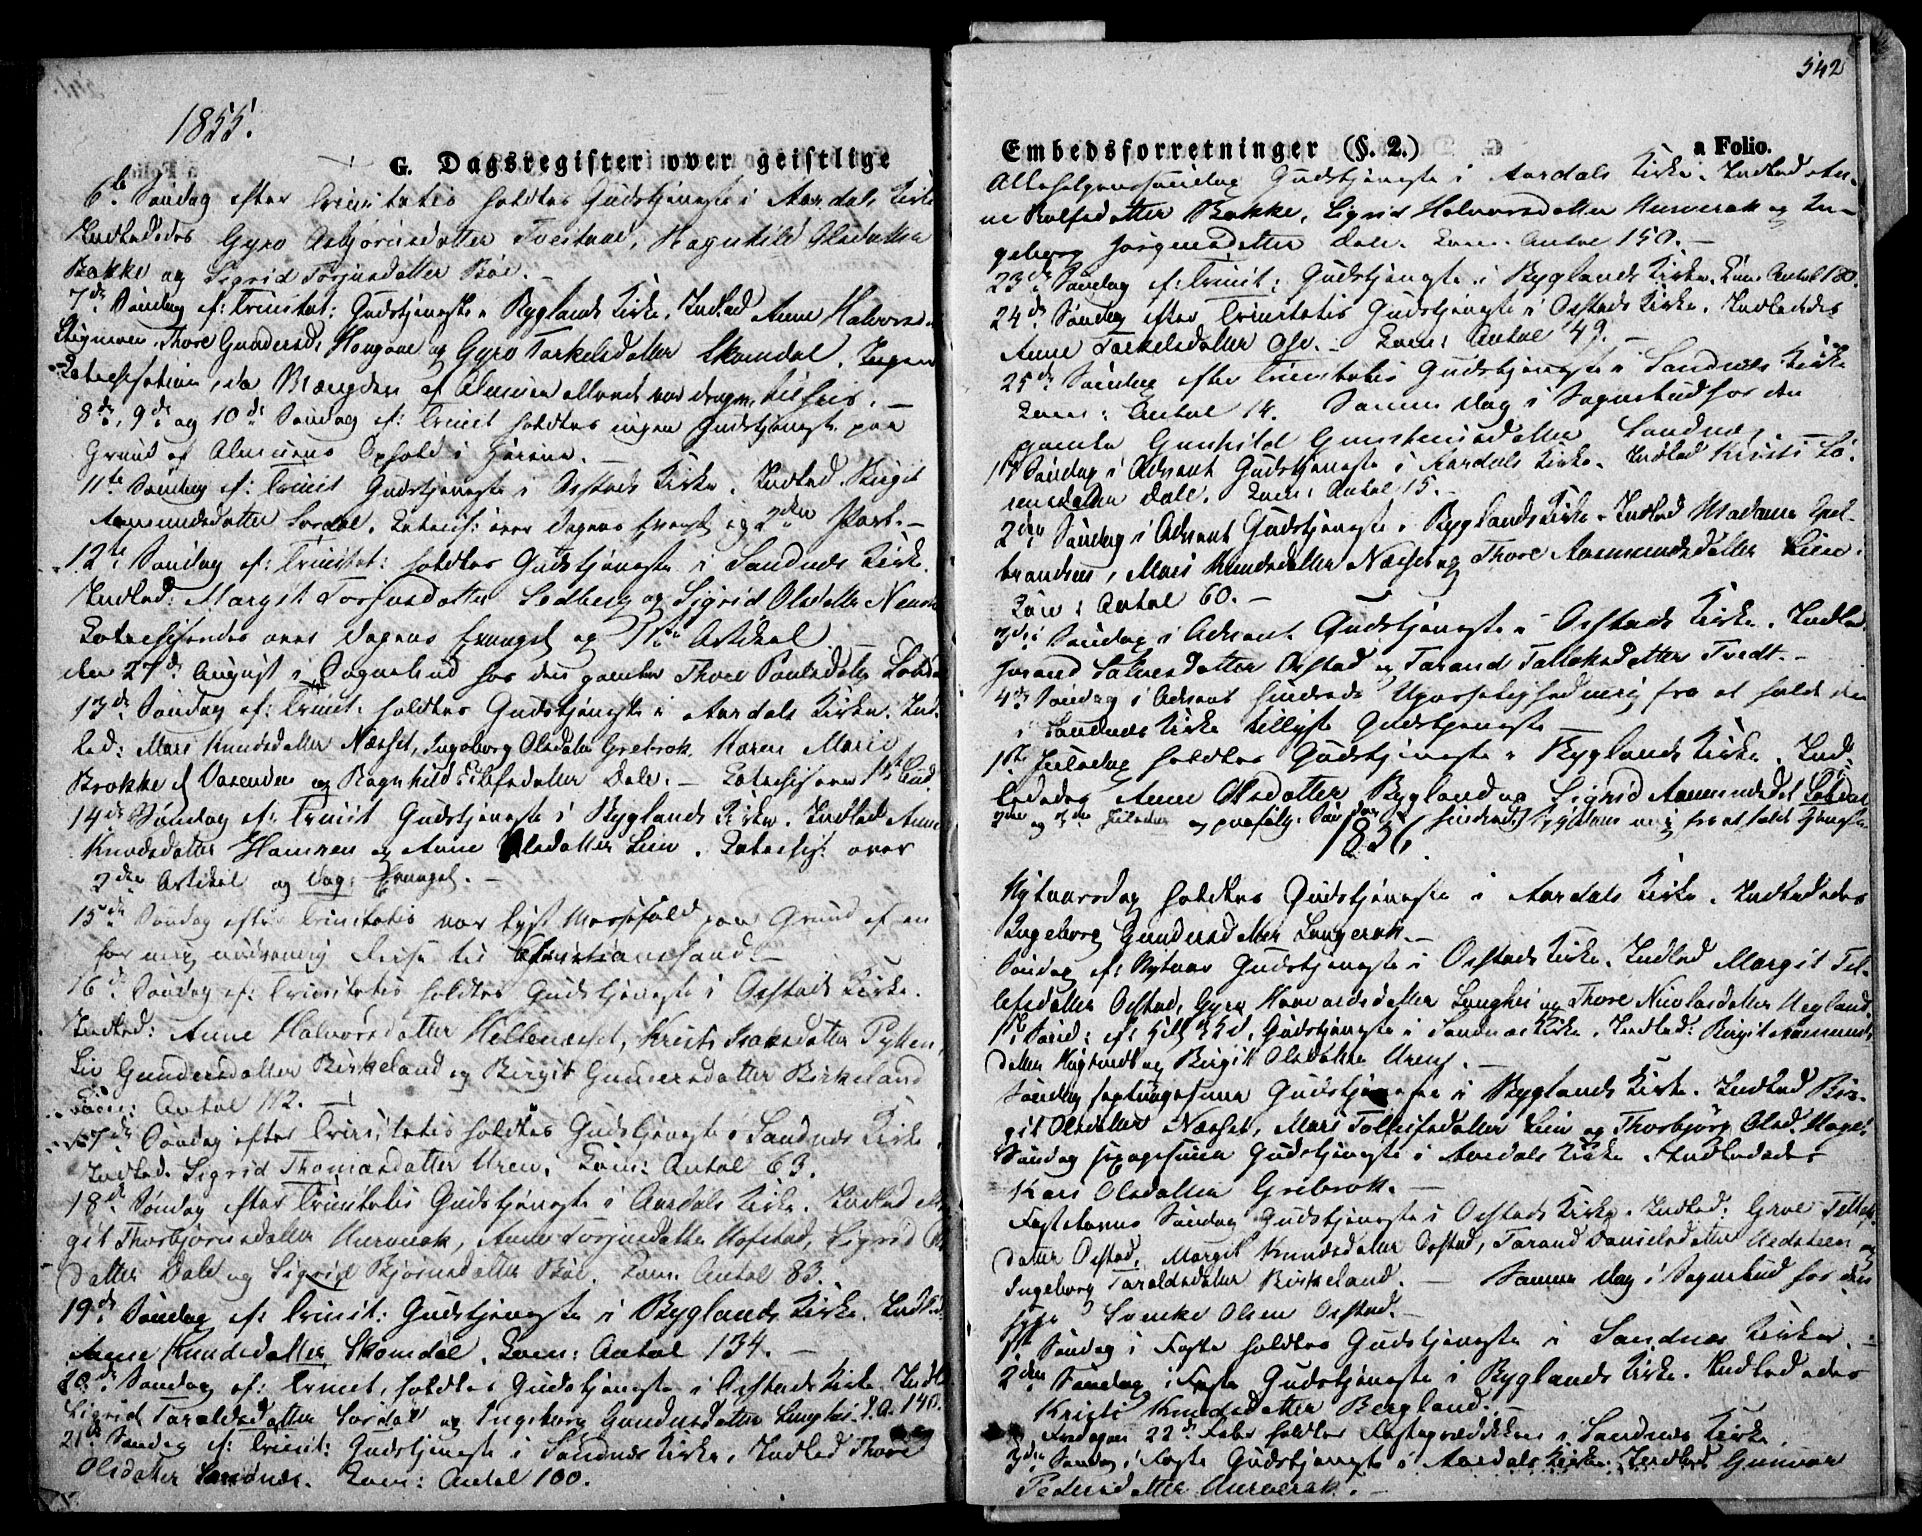 1855.
G. Dagsregister over geistlige
6te Søndag efter Trinitatis holdtes Gudstjeneste i Aardals Kirke
Indlededes Gyro Asbjørnsdatter Tveitaae, Ragnhild Olsdatter
Bakke og Sigrid Torjusdatter Bøe.
7de Søndag ef: Trinitat: Gudstjeneste i Byglands Kirke. Indled. Anne Halvorsd.
Thore Gundersd. Haugaae og Gyro Tarkelsdatter Skomdal. Ingen
Katechisation, da Mængden af Almuen allerede var dragen til Heis. –
8de, 9de og 10de Søndag ef: Trinit holdtes ingen Gudstjeneste paa
Grund af Almuens Ophold i Heiene. –
11te Søndag ef: Trinit Gudstjeneste i Ostads Kirke. Indled. Birgit
Aamundsdatter Lordal. Katechis: over Dagens Evangel og 2den Part. –
12te Søndag ef: Trinitat: holdtes Gudstjeneste i Sandnes Kirke.
Indled: Margit Torjusdatter Sedberg og Sigrid Olsdatter
Katechiseredes over Dagens Evangel og 1ste Artikel.
den 27de August i Sognebud hos den gamle Thore Poulsdatter
13de Søndag ef: Trinit. holdtes Gudstjeneste i Aardals Kirke. Ind-
led: Mari Knudsdatter Næset, Ingeborg Olsdatter Grebrok Karen Marie
Brokke af Vasenden og Ragnhild Eilefsdatter Dale. – Katechis over 1ste
14de Søndag ef: Trinit Gudstjeneste i Byglands Kirke. Indled Anne
Knudsdatter Hamren og Anne Olsdatter Lien. Katechis: over
2den Artikel og Dag: Evangel. –
15de Søndag efter Trinitatis var lyst Messefald paa Grund af en
for mig nødvendig Reise til Christiansand. –
16de Søndag ef: Trinitatis holdtes Gudstjeneste i Ostads Kirke.
Indled: Anne Halvorsdatter Hellenæset, Kristi Isaksdatter Pytten,
Liv Gundersdatter Birkeland og Birgit Gundersdatter Birkeland
Com: Antal 112. –
17de Søndag efter Trinitatis holdtes Gudstjeneste i Sandnes Kirke
Indled. Sigrid Thomasdatter Uren. Kom: Antal 63.
18de Søndag efter Trinitatis Gudstjeneste i Aardals Kirke. Indled
git Thorbjørnsdatter Hurverak, Anne Torjusdatter Hofstad, Sigrid
datter Dale og Sigrid Bjørnsdatter Bøe. Kom. Antal 83.
19de Søndag ef: Trinit: Gudstjeneste i Byglands Kirke. Indled.
Anne Knudsdatter Skomdal. Kom: Antal 134. –
20de Søndag ef: Trinit. holdtes Gudstjeneste i Ostads Kirke. Indl.
Sigrid Taraldsdatter Lordal og Ingeborg Gundersdatter K. A. 140.
21de Søndag ef: Trinit: Gudstjeneste i Sandnes Kirke. Indled Thore
Olsdatter Sandnes. Kom: Antal 100.
542
Embedsforretninger (§. 2.) a Folio.
Allehelgenssøndag Gudstjeneste i Aardals Kirke. Indled An-
ne Rolfsdatter Bakke, Sigrid Halvorsdatter Hurverak og In-
geborg Jørgensdatter Dale. Kom. Antal 150. –
23de Søndag ef: Trinit: Gudstjeneste i Byglands Kirke. Kom. Antal 180.
24de Søndag efter Trinitatis Gudstjeneste i Ostads Kirke. Indlededes
Anne Tarkelsdatter Ose. – Kom: Antal 49. –
25de Søndag efter Trinitatis Gudstjeneste i Sandnes Kirke
Kom: Antal 14. Samme Dag i Sognebud hos den
gamle Gunhild Gunsteinsdatter Sandnes.
1ste Søndag i Advent Gudstjeneste i Aardals Kirke. Indled Kristi Sø-
rensdatter Dale. Kom: Antal 15. –
2den Søndag i Advent Gudstjeneste i Byglands Kirke. Indled Madame
brandsen, Mari Knudsdatter Næset og Thore Aamundsdatter Lien.
Kom: Antal 60. –
3die Søndag i Advent Gudstjeneste i Ostads Kirke. Indled.
Jorand Salvesdatter Ostad og Tarand Tallaksdatter Tvedt. –
4de Søndag i Advent hindrede Upasselighed mig fra at holde den
i Sandnes Kirke tillyste Gudstjeneste
1ste Juledag holdtes Gudstjeneste i Byglands Kirke. Ind-
ledede Anne Olsdatter Bygland og Sigrid Aamundsdat Lordal
2den og 3die Juledag og paafølg. Søndag hindrede Sygdom mig fra at holde Tjeneste
1856.
Nytaarsdag holdtes Gudstjeneste i Aardals Kirke. Indlededes
Ingeborg Gundersdatter Langerak. –
Søndag ef: Nytaar Gudstjeneste i Ostads Kirke. Indled Margit Tel-
lefsdatter Ostad, Gyro Haavardsdatter og Thore Nicolasdatter Uegland.
1ste Sønd: ef: Hell. 3 K. Gudstjeneste i Sandnes Kirke. Indled: Birgit Aamunds-
datter og Birgit Olsdatter Uren. –
Søndag Septuagesima Gudstjeneste i Byglands Kirke. Indled Bir-
git Olsdatter Næset, Mari Tolleifsdatter Lien og Thorbjørg Olsd.
Søndag Sexagesima Gudstjeneste i Aardals Kirke. Indlededes
Kari Olsdatter Grebrok. –
Fastelavns Søndag Gudstjeneste i Ostads Kirke. Indled: Groe Tellef-
datter Ostad, Margit Knudsdatter Ostad, Tarand Danielsdatter Uedsteen og
Ingeborg Taraldsdatter Birkeland. – Samme Dag i Sognebud hos den
syge Svenke Olsen Ostad. –
1ste Søndag i Faste holdtes Gudstjeneste i Sandnes Kirke. –
2den Søndag i Faste Gudstjeneste i Byglands Kirke. Indlededes
Kristi Knudsdatter Bergland. –
Fredagen 22de Febr holdtes Fasteprædiken i Sandnes Kirke
3die Søndag i Faste Gudstjeneste i Aardals Kirke. Indled Gunvor
Pedersdatter Hurverak. –